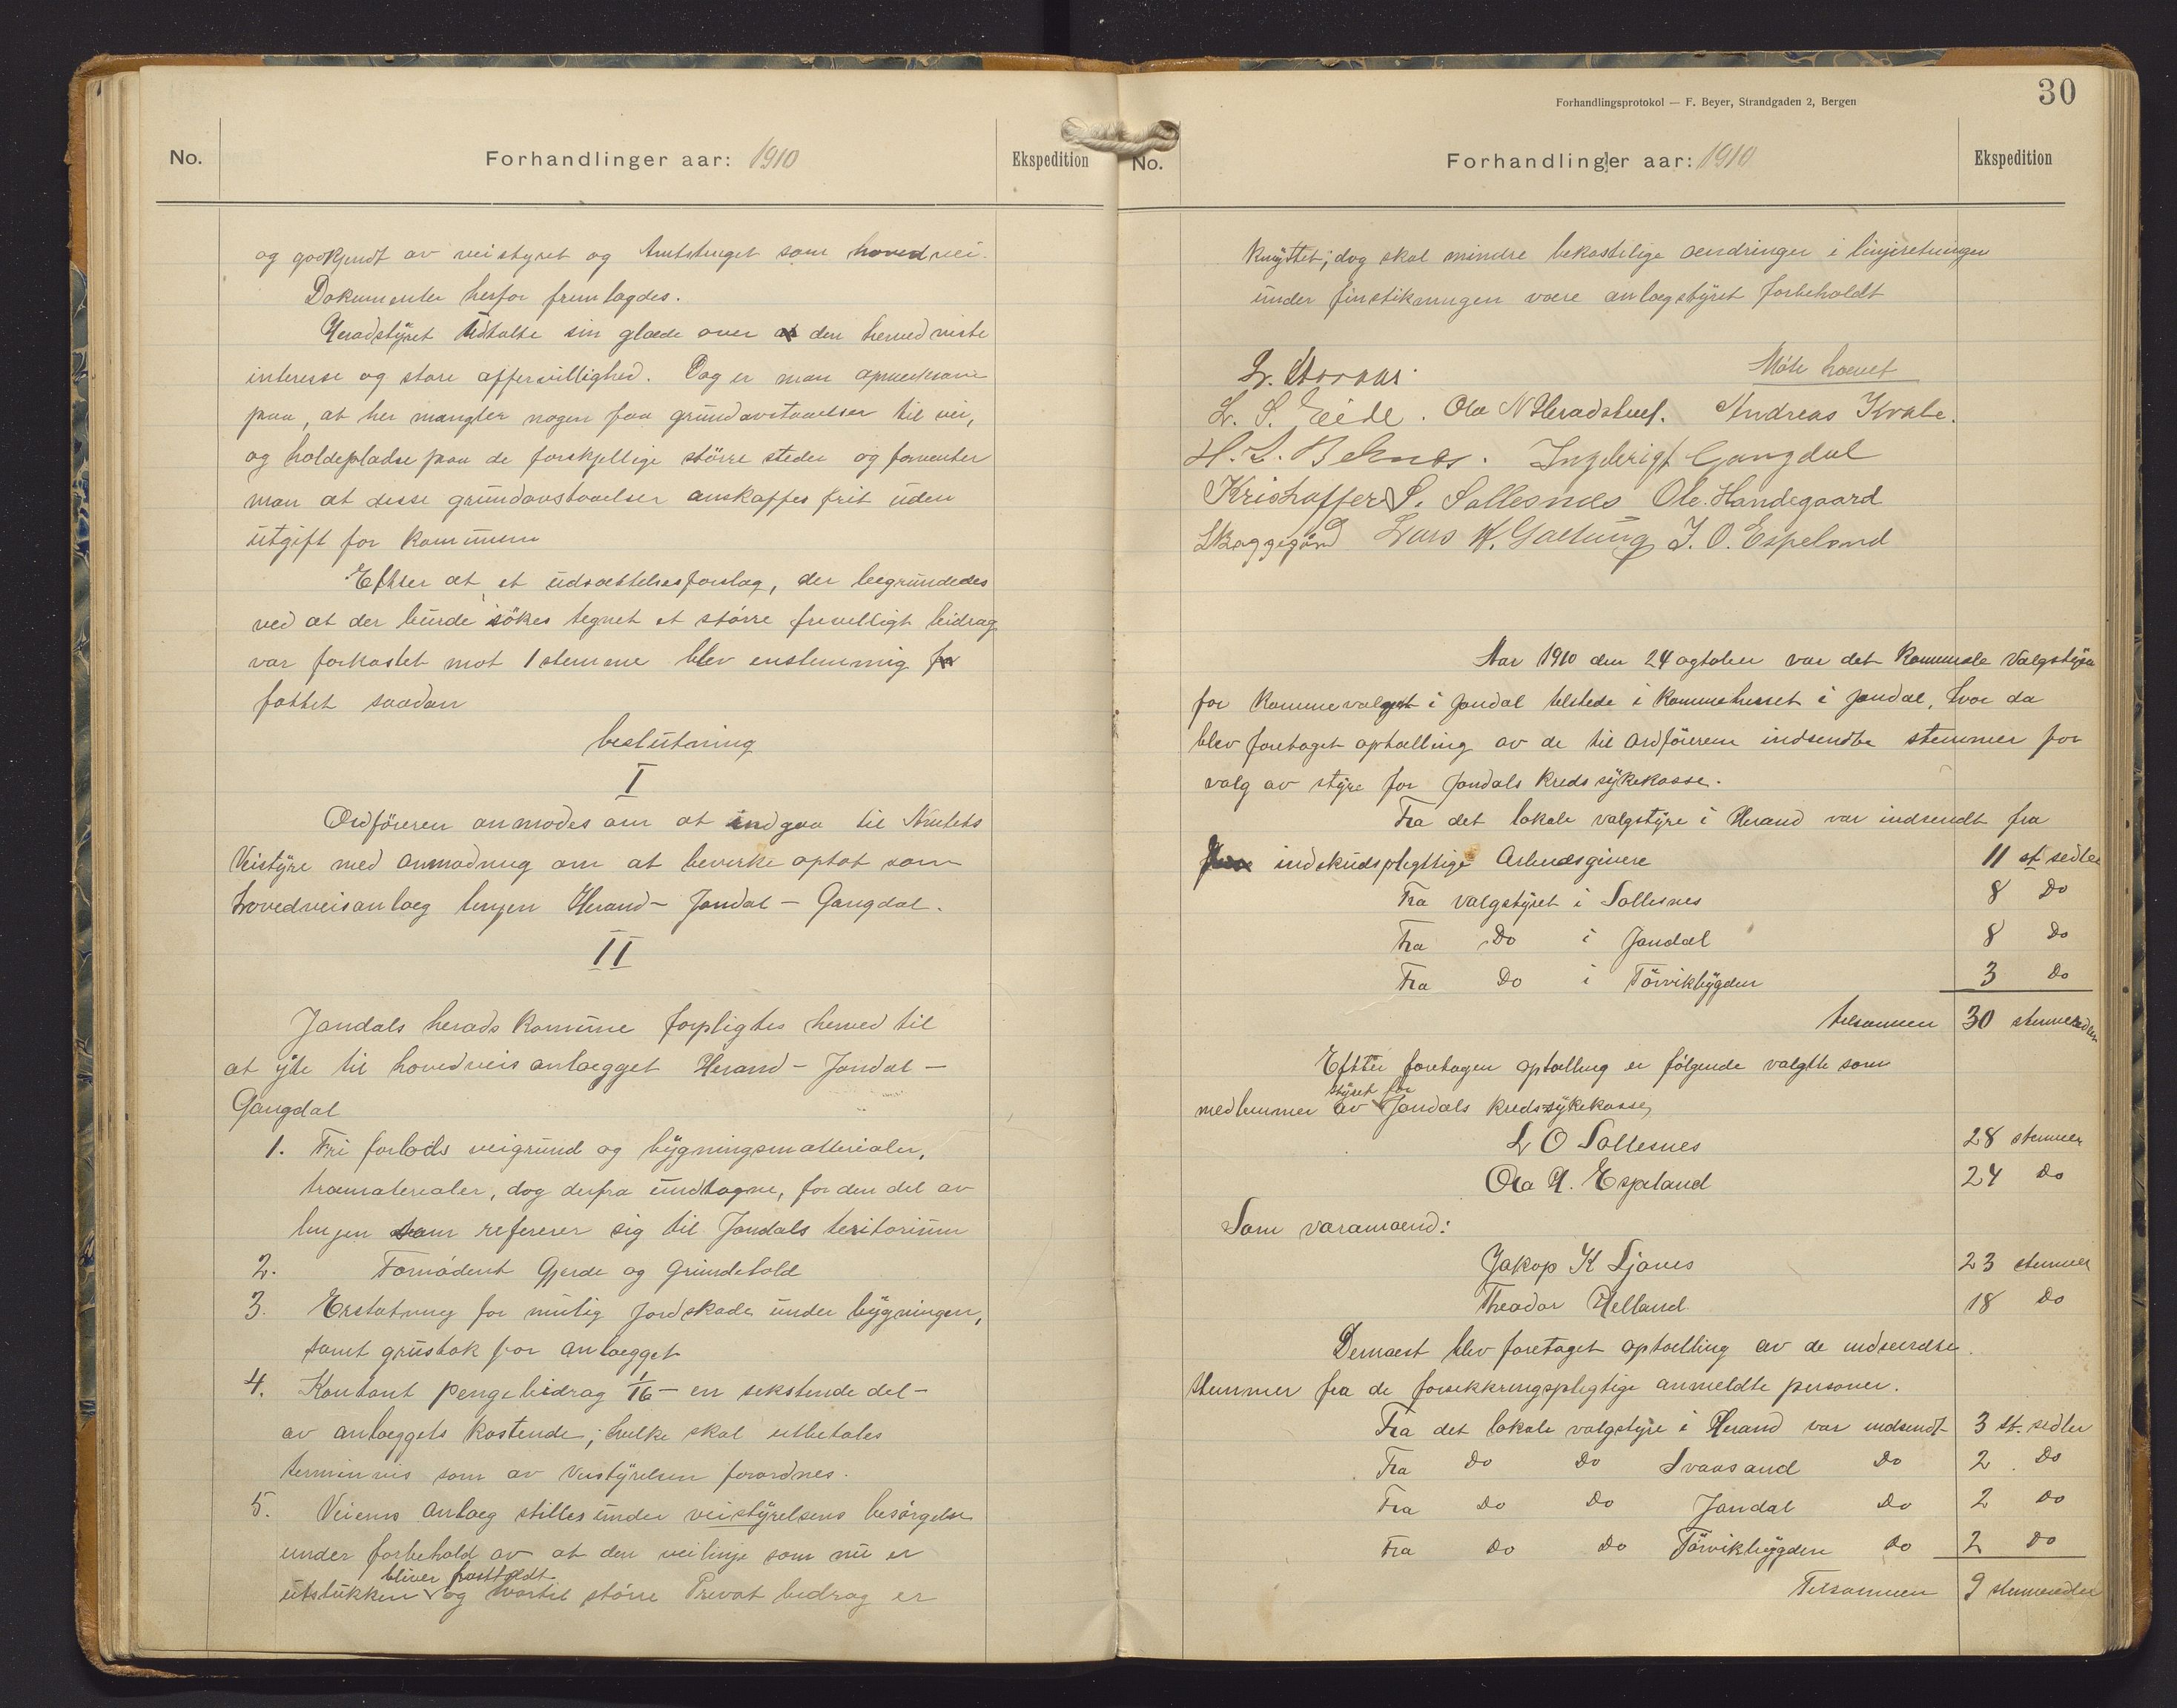 No.
Forhandlinger aar: 1910
Ekspedition
og godkjendt av veistyret og Amtstinget som hovedvei.
Dokumenter herfor fremlagdes.
Heradstyret udtalte sin glæde over den herved viste
interesse og store offervillighed. Dog er man opmerksom
paa, at her mangler nogen faa grundavstaaelser til vei,
og holdepladse paa de forskjellige större steder og forventer
man at disse grundavstaaelser anskaffes frit uden
utgift for kommunen
Efter at et udsættelsesforslag, der begrundedes
ved at der burde sökes tegnet et större frivelligt bidrag
var forkastet mot 1 stemme blev enstemmig
fattet saadan
beslutning
I
Ordföreren anmodes om at indgaa til Amtets
Veistyre med anmodning om at bevirke optat som
hovedveisanlæg linjen Herand - Jondal - Gangdal.
II
Jondals herads komune forpligtes herved til
at yde til hovedveisanlægget Herand - Jondal -
Gangdal
1. Fri forlods veigrund og bygningsmatterialer,
træmaterealer, dog derfra undtagne, for den del av
linjen som referer sig til Jondals teritorium
2. Fornödent Gjerde og Grindehold
3. Erstatning for mulig jordskade under bygningen,
samt grustak for anlægget
4. Kontant pengebidrag 1/16 - en sekstende del -
av anlæggets kostende; hvilke skal utbetales
terminvis som av Veistyrelsen forordnes.
5. Veiens anlæg stilles under veistyrelsens besörgelse
under forbehold av at den veilinje som nu er
bliver fastholdt
utstukken og hvortil större Privat bedrag er
Forhandlingsprotokol — F. Beyer, Strandgaden 2, Bergen
30
No.
Forhandlinger aar: 1910
Ekspedition
knyttet; dog skal mindre bekostelige ændringer i linjeretningen
under finstikningen være anlægstyret forbeholdt
Möte hævet
L.
L. S. Eide. Ola N Heradstveit. Andreas Kvale.
H. L. Belsnes. Ingebrigt Gangdal
Kristoffer S. Sollesnes Ole Handegaard
Lars K. Galtung J. O. Espeland
Aar 1910 den 24 ogtober var det komunale Valgstyre
for kommevalget i Jondal tilstede i kommehusset i Jondal, hvor da
blev foretaget optælling av de til ordföreren indsendte stemmer for
valg av styre for Jondals kreds sykekasse.
Fra det lokale valgstyre i Herand var indsendt fra
indskudspligttige Arbeidsgivere 11 st sedler
Fra valgstyret i Sollesnes 8 Do
Fra Do i Jondal 8 Do
Fra Do i Törvikbygden 3 Do
tilsammen 30 stemmesedler
Eftter foretagen optælling er fölgende valgtte som
styret for
medlemmer av Jondals kreds-sykekasse,
L O Sollesnes 28 stemmer
Ola H. Espeland 24 Do
Som varamænd:
Jakop K Sjönes 23 stemmer
Theodor Helland 18 Do
Dernæst blev foretaget optælling av de indsendte
stemmer fra de forsekkringspligtige anmeldte personer.
Fra det lokale valgstyre i Herand var indsendt 3 st. sedler
Fra Do Do Svaasand Do 2 Do
Fra Do Do Jondal Do 2 Do
Fra Do Do Törvikbygden Do 2 Do
Tilsammen 9 stemmesedler